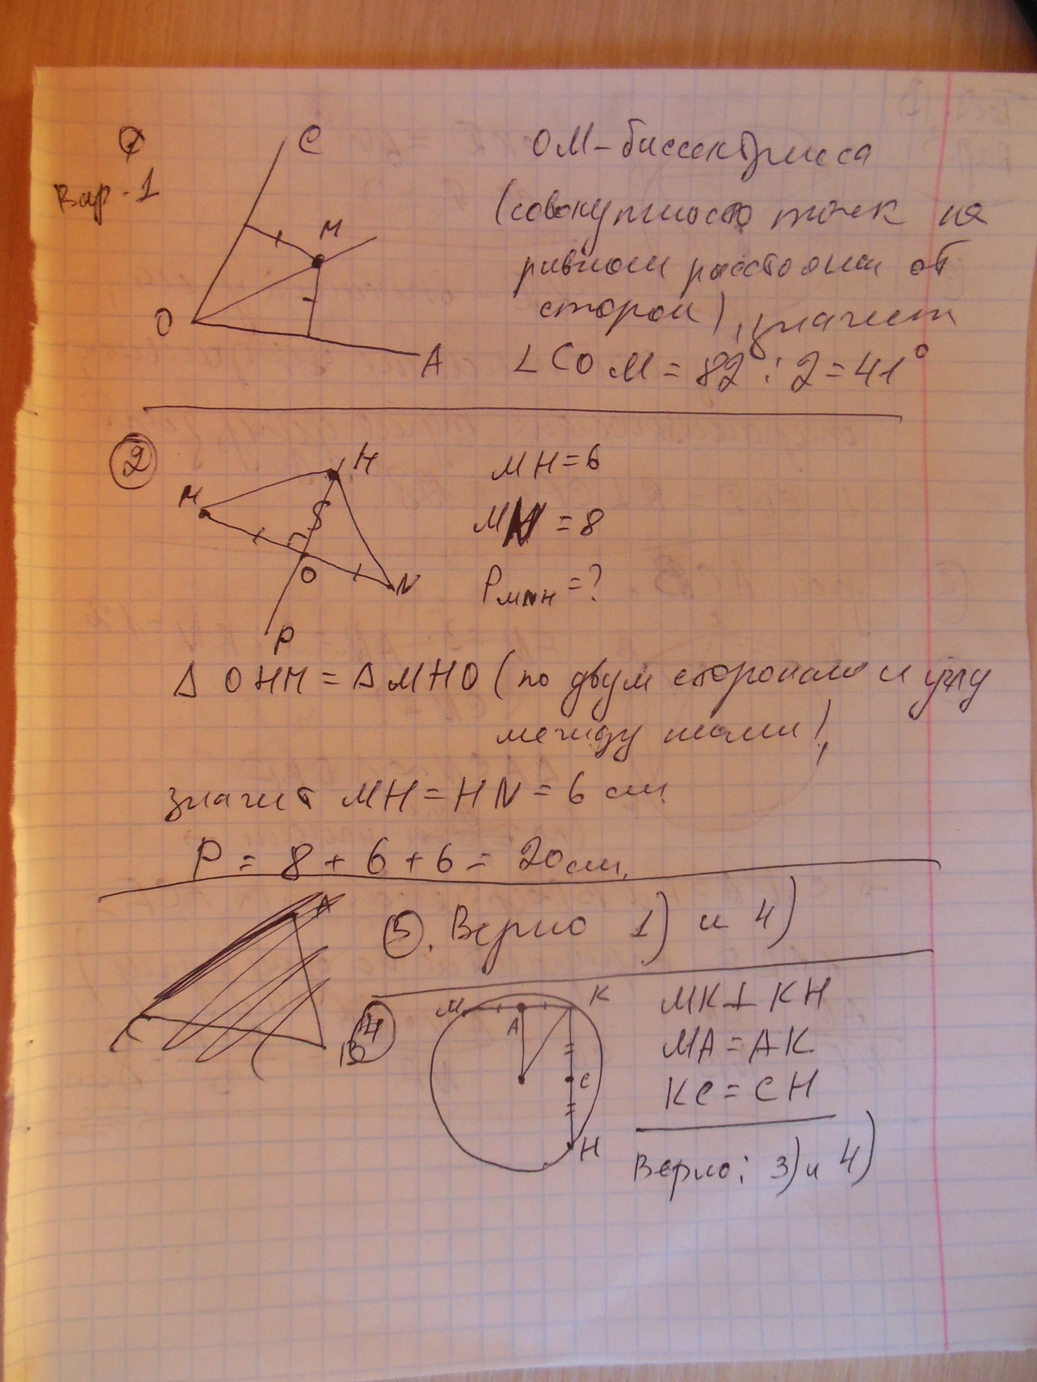 Вар-1
C
M
O
A
OM-биссектрисса
(совокупность точек на
равном расстоянии от
сторон), значит
∠COM = 82° : 2 = 41°
2
M
H
O
N
P
MH = 6
MN = 8
P MNH = ?
Δ OHM = Δ MHO (по двум сторонам и углу
между ними),
значит MH = HN = 6 см
P = 8 + 6 + 6 = 20 см.
A
C
B
5. Верно 1) и 4)
4
M
A
K
C
H
MK⊥KH
MA = AK
KC = CH
Верно: 3) и 4)